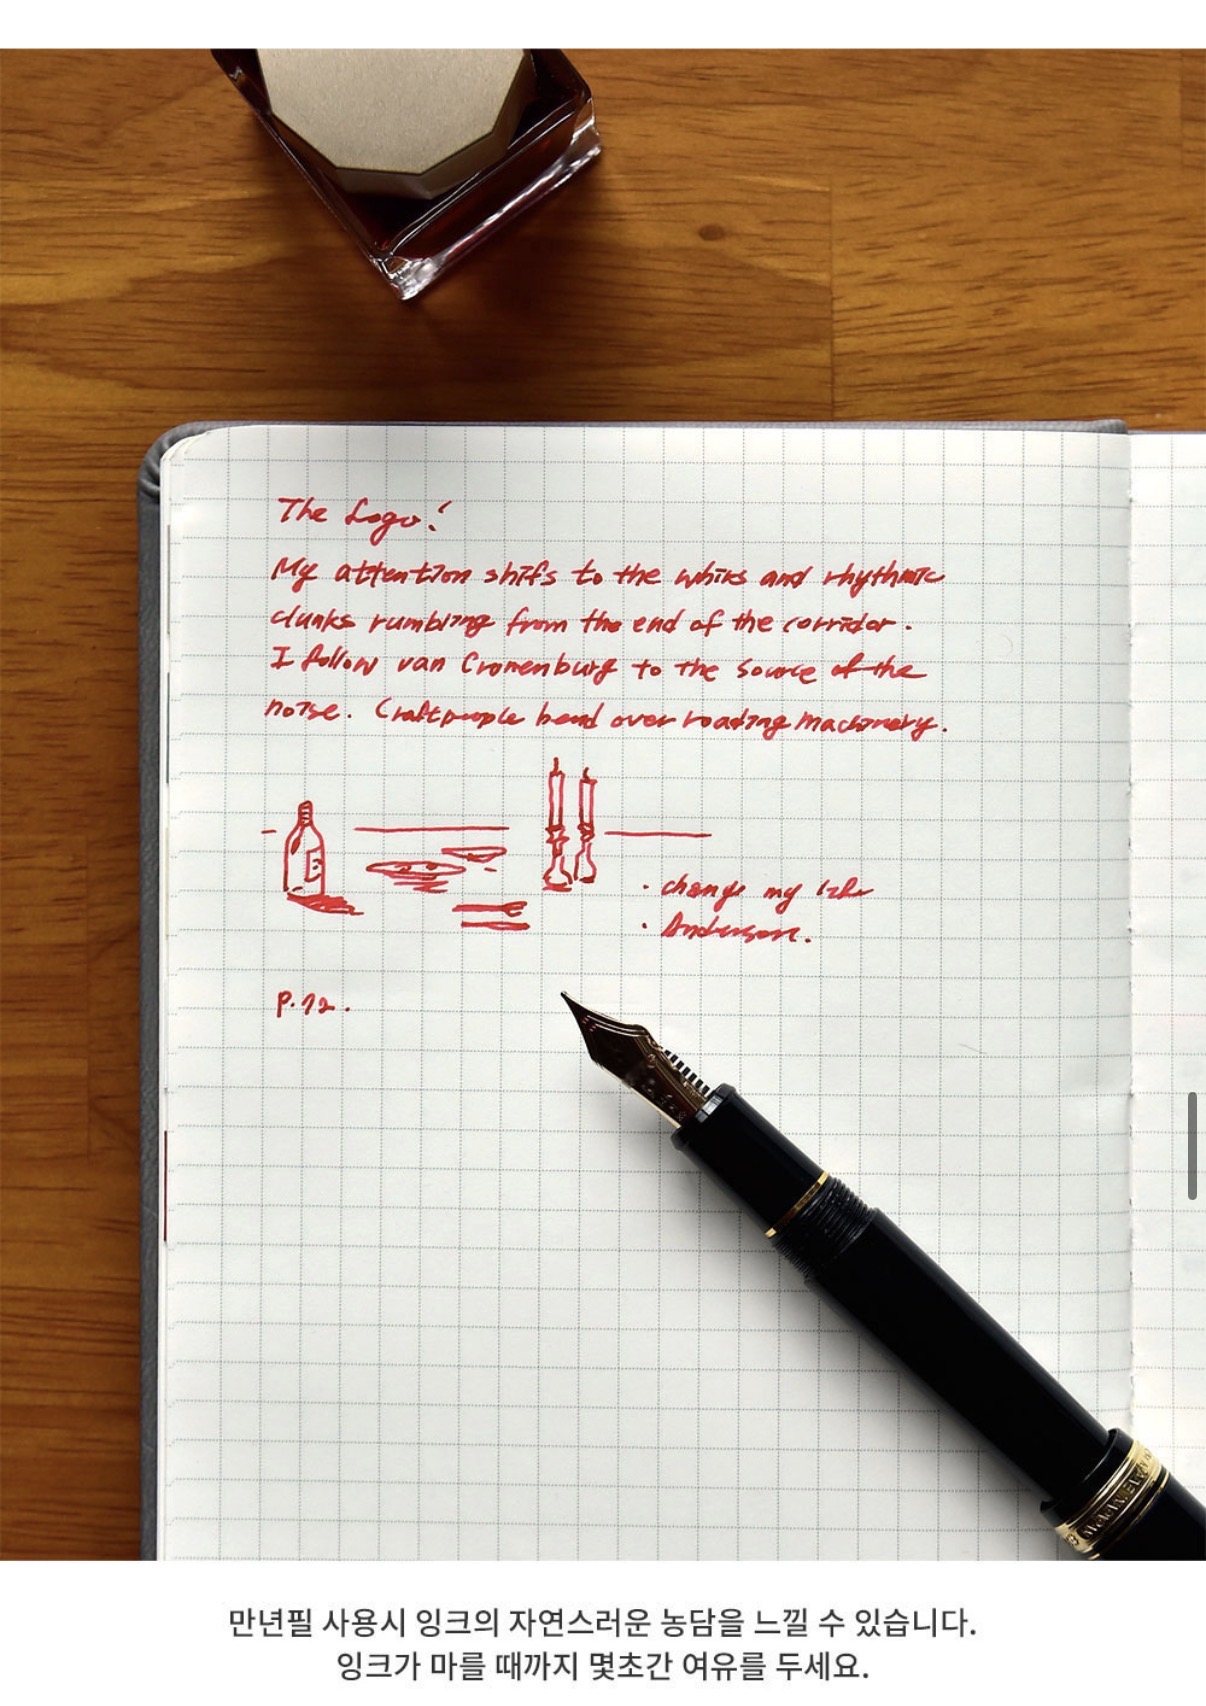 The Logo!
My attention shifs to the whirs and rhythmic
clunks rumbling from the end of the corridor.
I follow van Cronenburg to the source of the
noise. Craftpeople bend over roading machinery.
· change my
· Anderson.
P.12.
만년필 사용시 잉크의 자연스러운 농담을 느낄 수 있습니다.
잉크가 마를 때까지 몇초간 여유를 두세요.